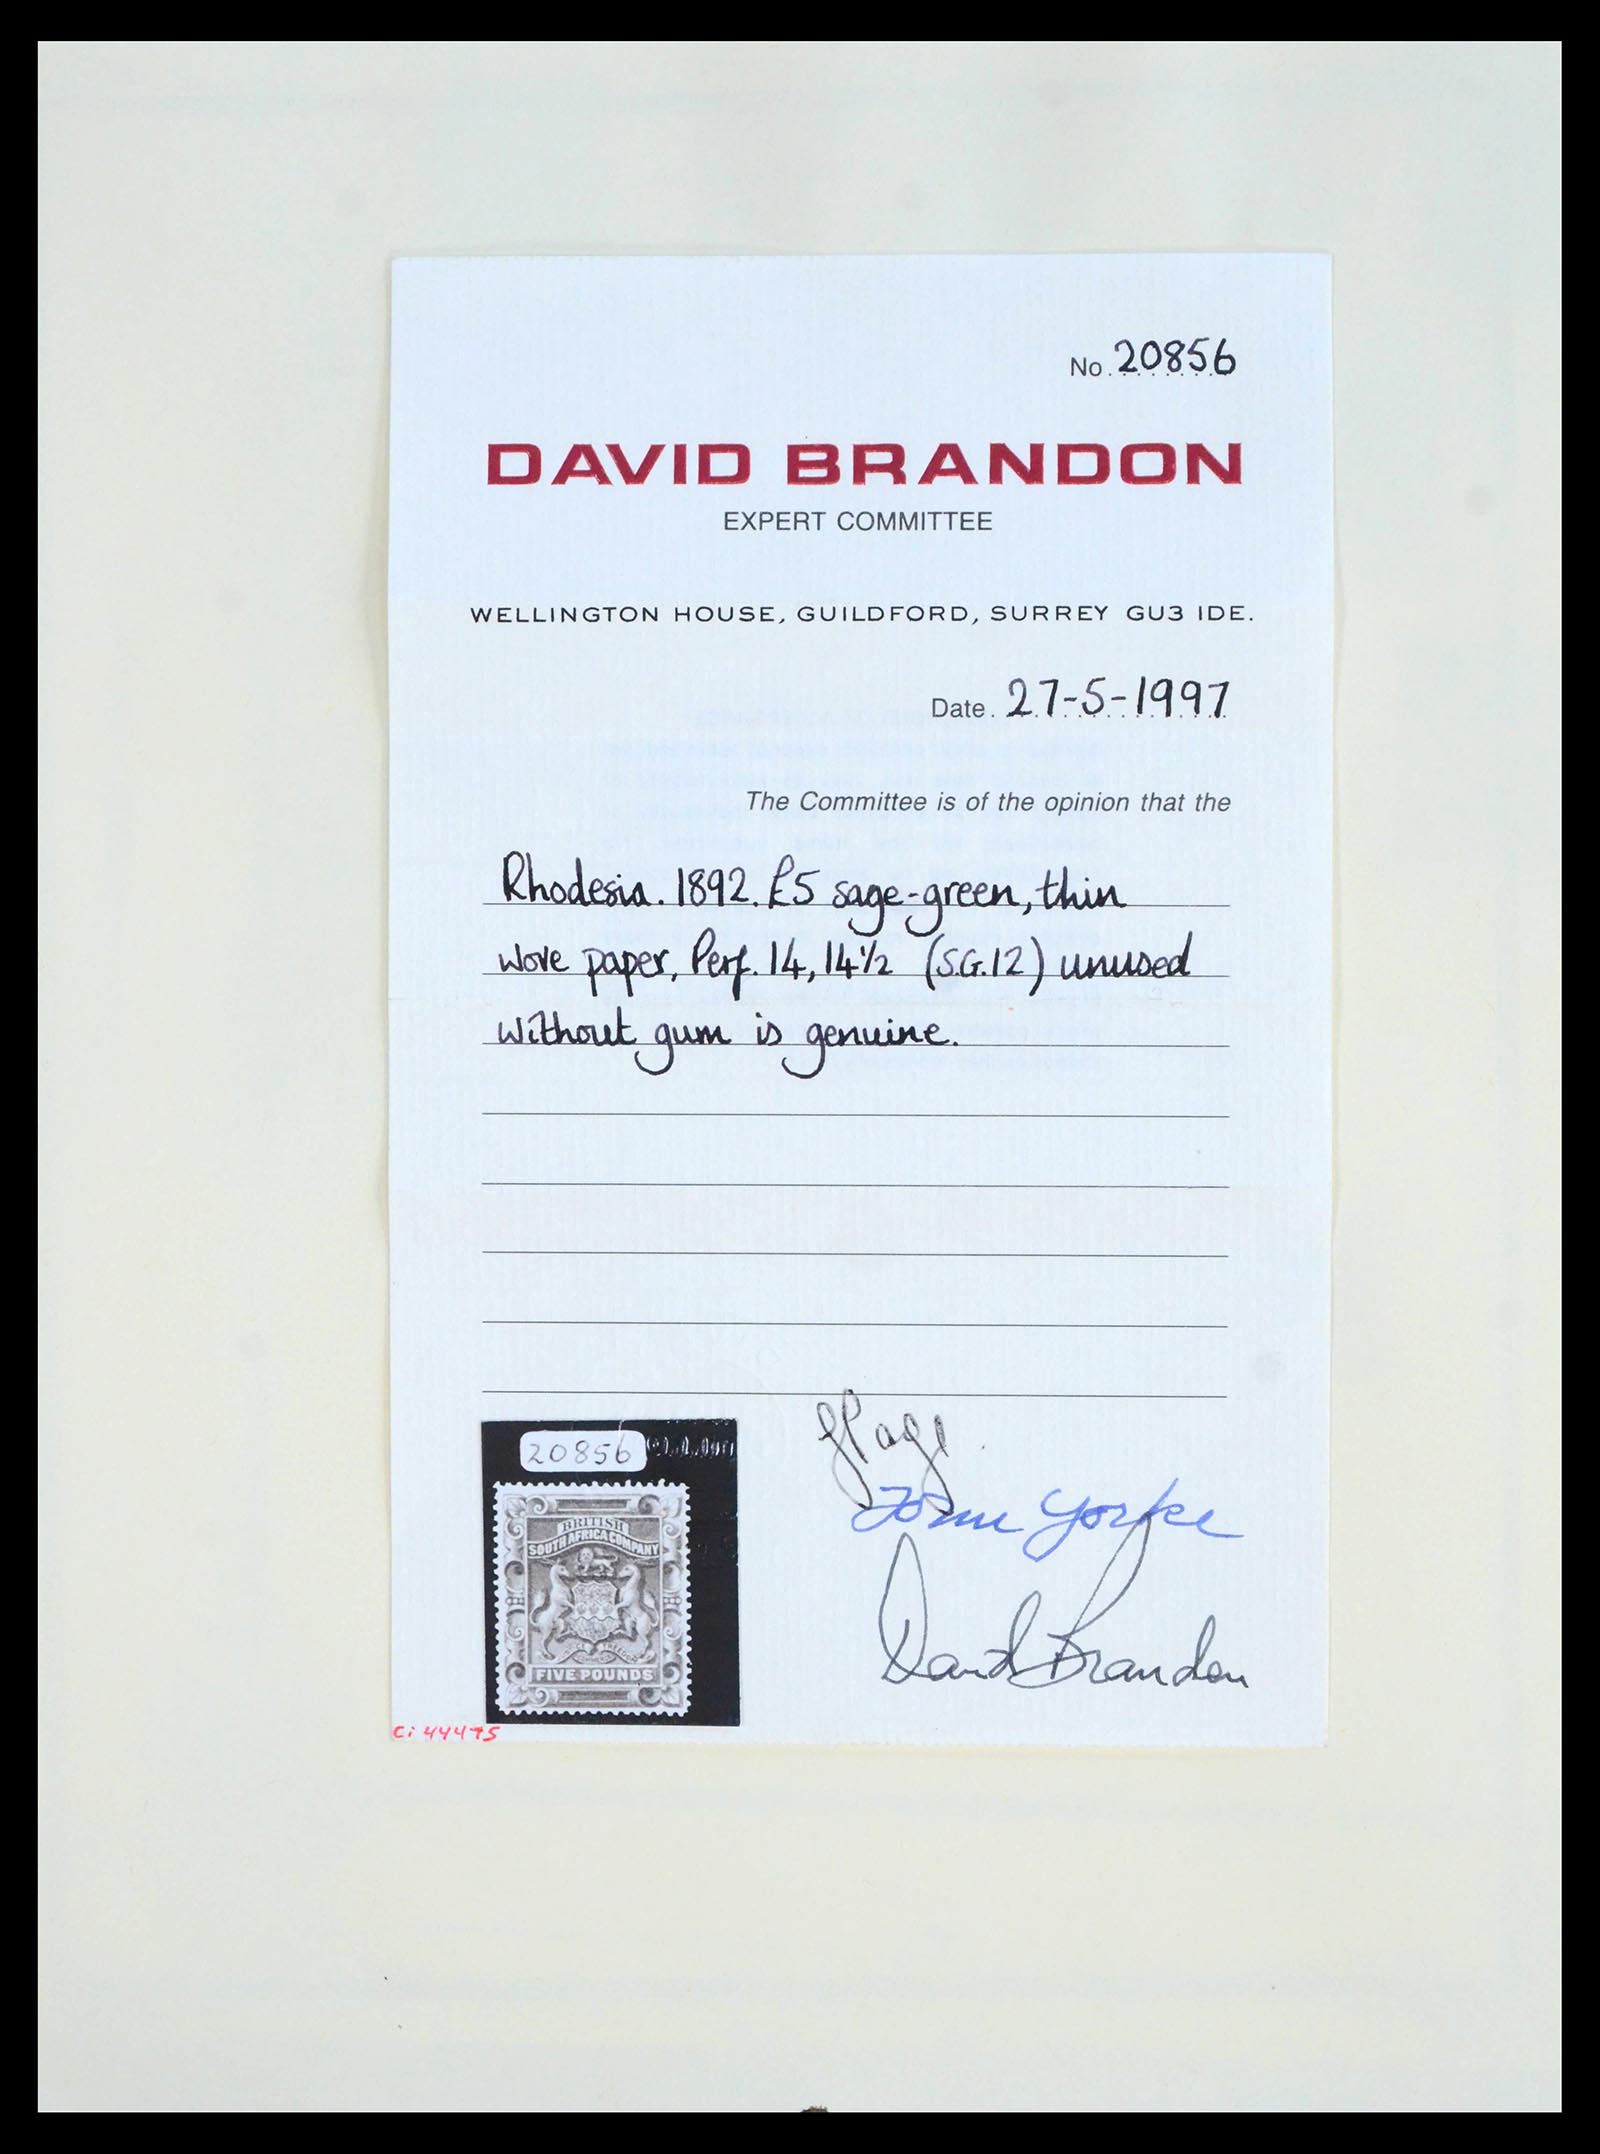 No. 20856
DAVID BRANDON
EXPERT COMMITTEE
WELLINGTON HOUSE, GUILDFORD, SURREY GU3 IDE.
Date. 27-5-1997
The Committee is of the opinion that the
Rhodesia. 1892. £5 sage-green, thin
wove paper, Perf. 14, 14½ (S.G.12) unused
without gum is genuine.
20856
BRITISH
SOUTH AFRICA COMPANY
FIVE POUNDS
Yorke
David Brandon
Ci 44475